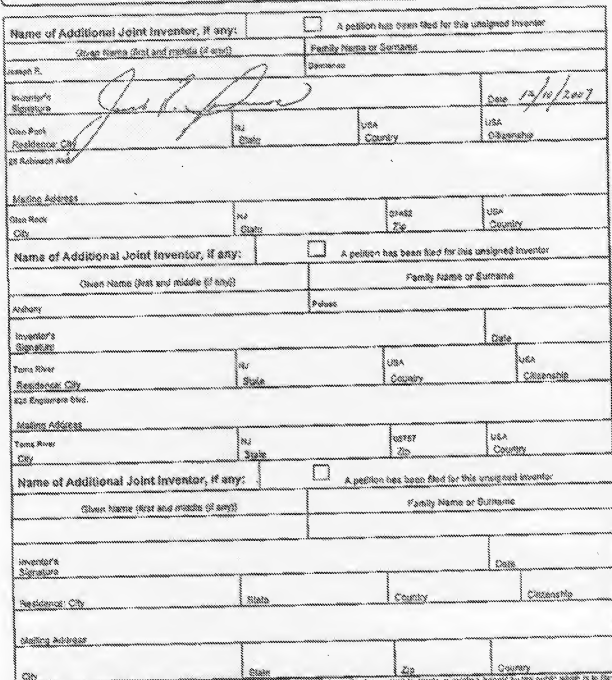 Name of Additional Joint Inventor, if any: A petition has been filed for this unsigned inventor
Given Name (first and middle (if any)) Family Name or Surname
Joseph R.
Inventor's Signature Date 12/10/2007
Glen Rock NJ USA USA
Residence: City State Country Citizenship
Robinson
Mailing Address
Glen Rock NJ 07452 USA
City State Zip Country
Name of Additional Joint Inventor, if any: A petition has been filed for this unsigned inventor
Given Name (first and middle (if any)) Family Name or Surname
Anthony Peluso
Inventor's Signature Date
Toms River NJ USA USA
Residence: City State Country Citizenship
blvd.
Mailing Address
Toms River NJ USA
City State Zip Country
Name of Additional Joint Inventor, if any: A petition has been filed for this unsigned inventor
Given Name (first and middle (if any)) Family Name or Surname
Inventor's Signature Date
Residence: City State Country Citizenship
Mailing Address
City State Zip Country